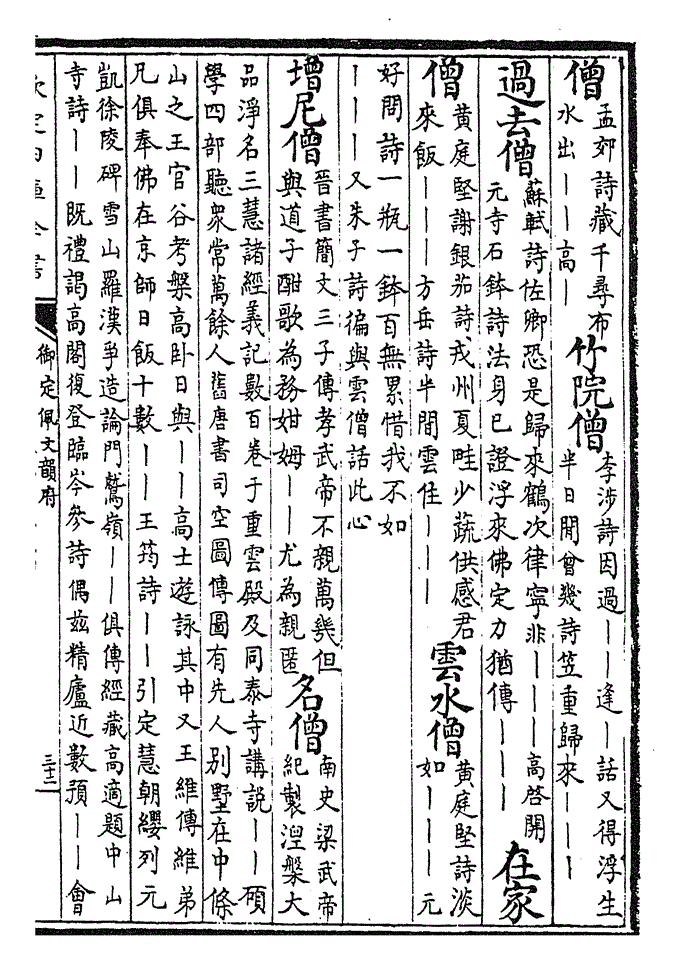 僧 孟郊詩藏千尋布
水出丨丨高丨
竹院僧 李涉詩因過丨丨逢丨話又得浮生
半日閒曾幾詩笠重歸來丨丨丨
過去僧 蘇軾詩佐卿恐是歸來鶴次律寧非丨丨丨高啓開
元寺石鉢詩法身已證浮來佛定力猶傳丨丨丨
在家
僧 黃庭堅謝銀茄詩戎州夏畦少蔬供感君
來飯丨丨丨方岳詩半間雲住丨丨丨
雲水僧 黃庭堅詩淡
如丨丨丨元
好問詩一瓶一鉢百無累惜我不如
丨丨丨又朱子詩徧與雲僧話此心
增尼僧 晉書簡文三子傳孝武帝不親萬幾但
與道子酣歌為務姏姆丨丨尤為親匿
名僧 南史梁武帝
紀製涅槃大
品淨名三慧諸經義記數百卷于重雲殿及同泰寺講說丨丨碩
學四部聽衆常萬餘人舊唐書司空圖傳圖有先人別墅在中條
山之王官谷考槃高卧日與丨丨高士遊詠其中又王維傳維弟
兄俱奉佛在京師日飯十數丨丨王筠詩丨丨引定慧朝纓列元
凱徐陵碑雪山羅漢爭造論門鷲嶺丨丨俱傳經藏高適題中山
寺詩丨丨既禮謁高閣復登臨岑參詩偶茲精廬近數預丨丨會
欽定四庫全書
御定佩文韻府
三十二